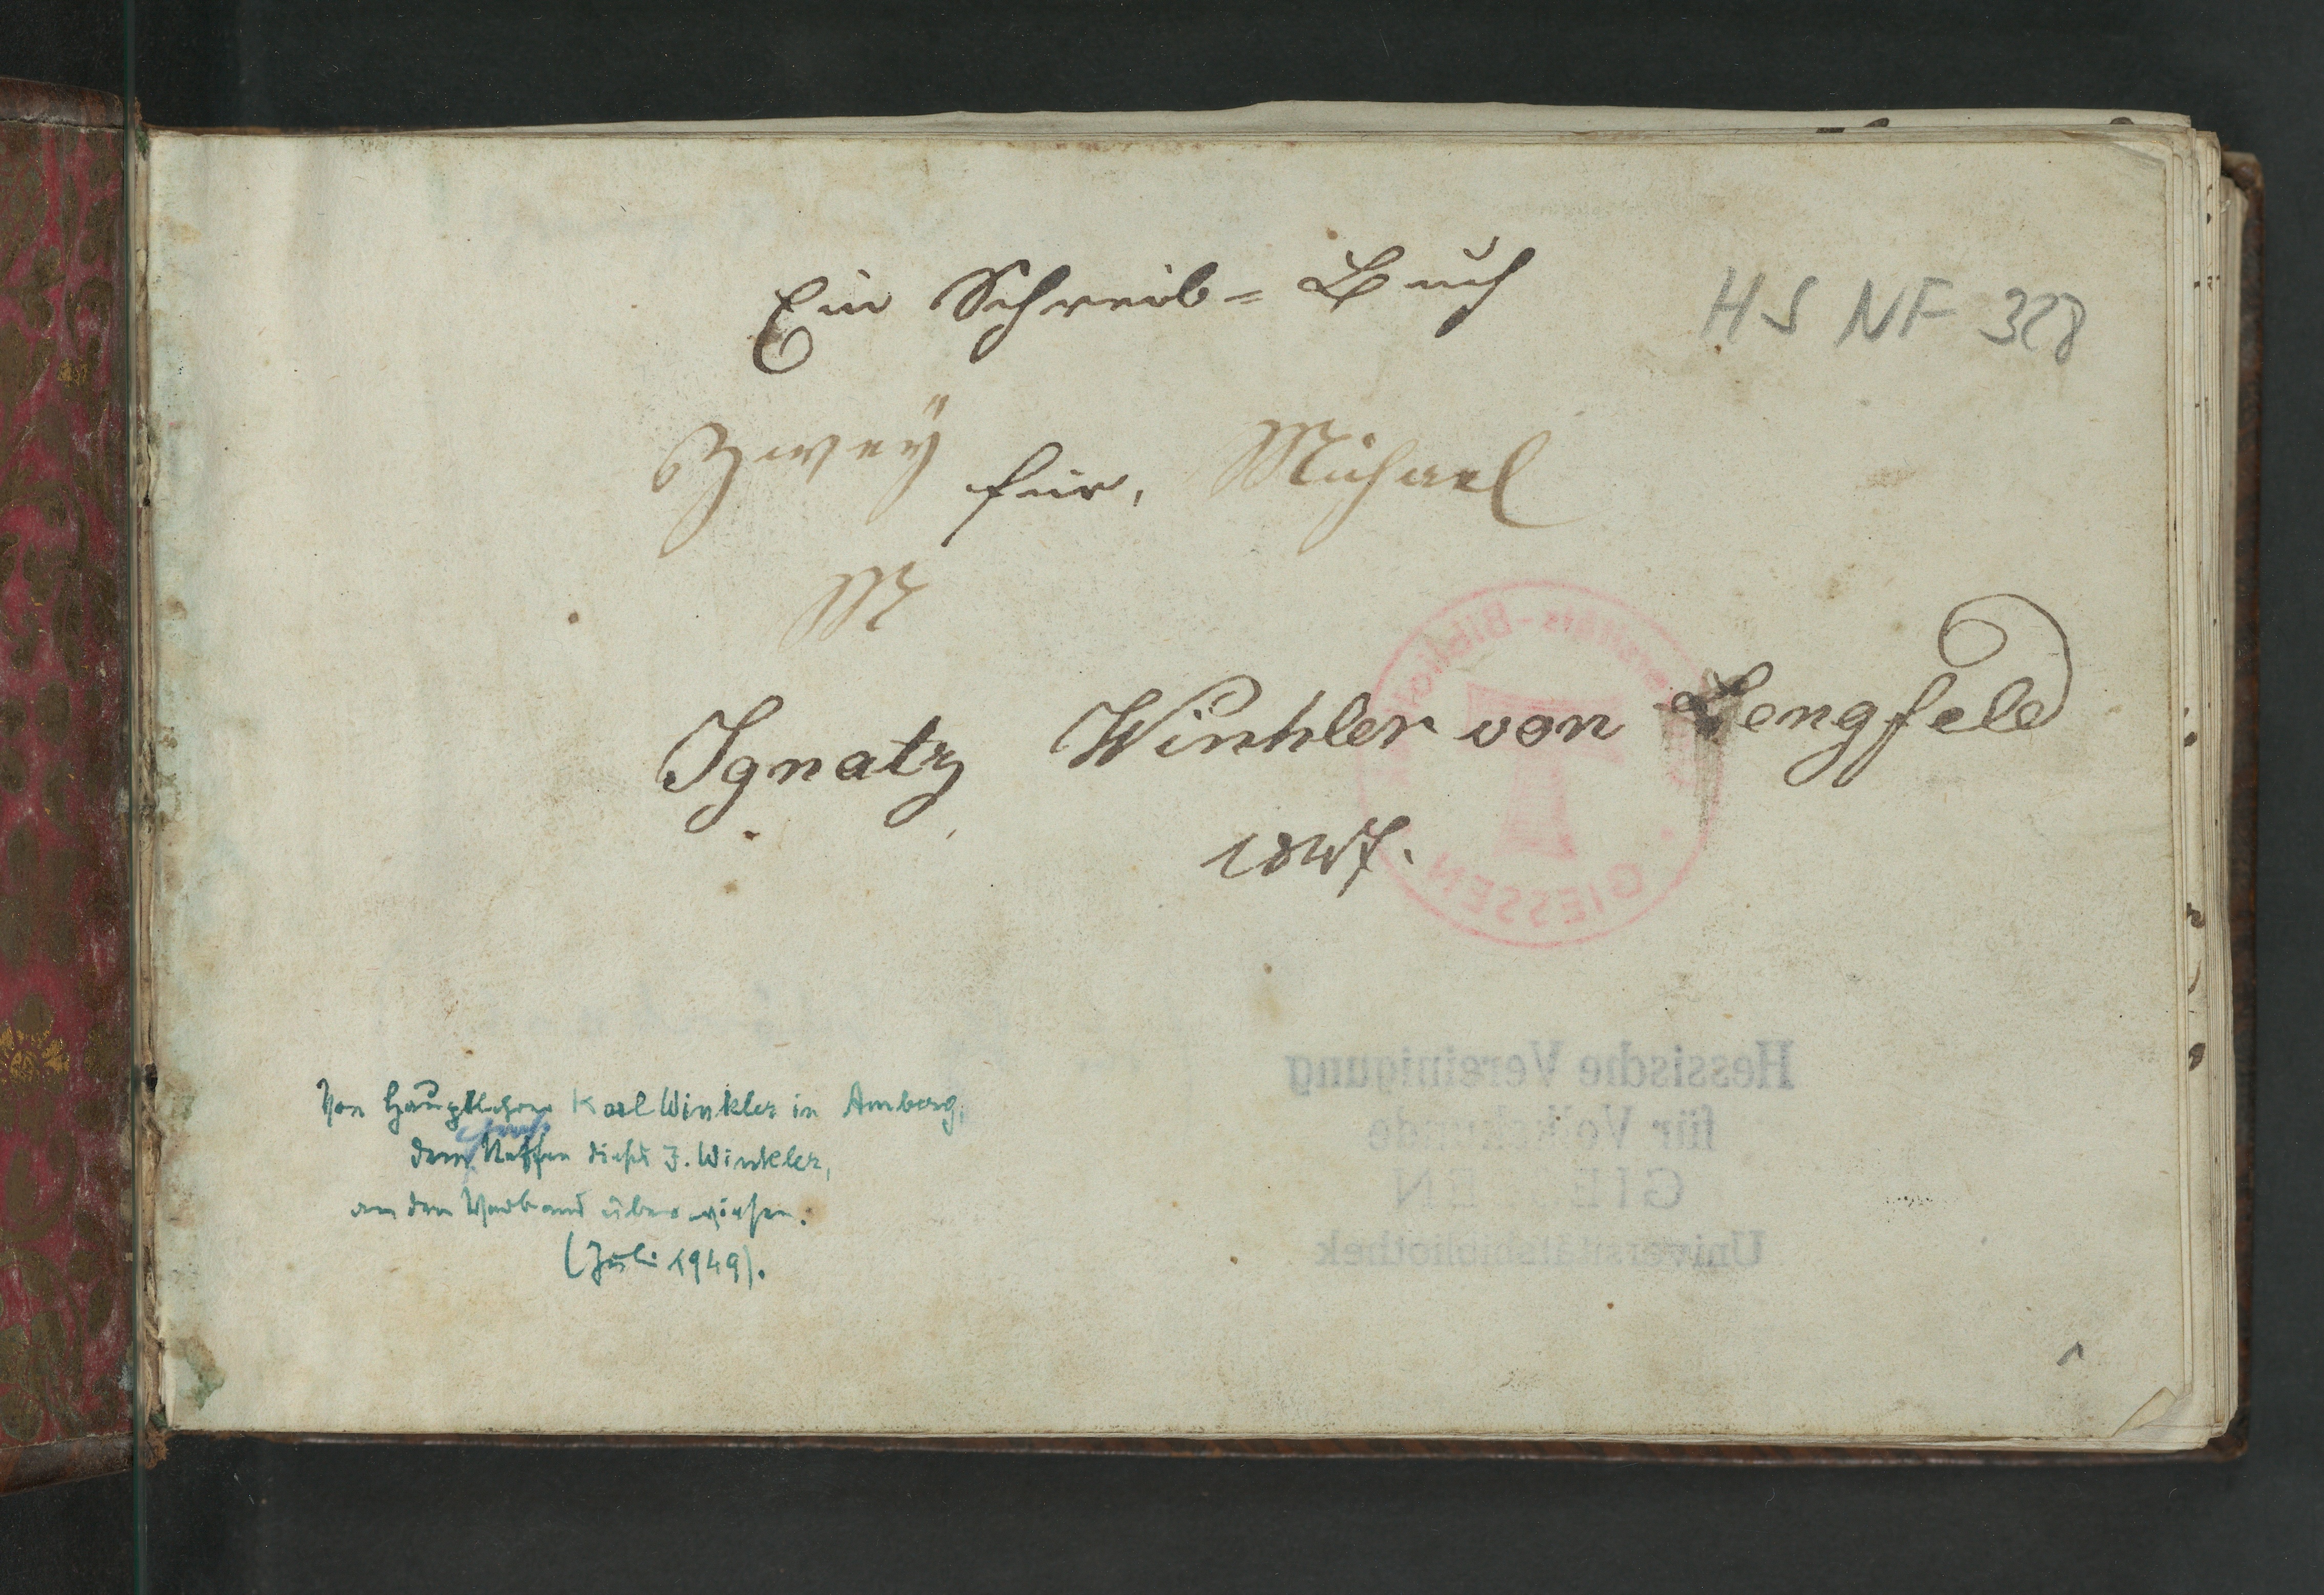 Ein Schreib= Buch
HS NF 328
Zweÿ für, Michael
M
Ignatz Winkler von Lengfeld
1847.
Universitäts-Bibliothek
GIESSEN
Von Hauptlehrer Karl Winkler in Amberg,
dem Neffen dieses J. Winkler,
an den Verband überwiesen.
(Juli 1949).
Hessische Vereinigung
für Volkskunde
GIESSEN
Universitätsbibliothek
1